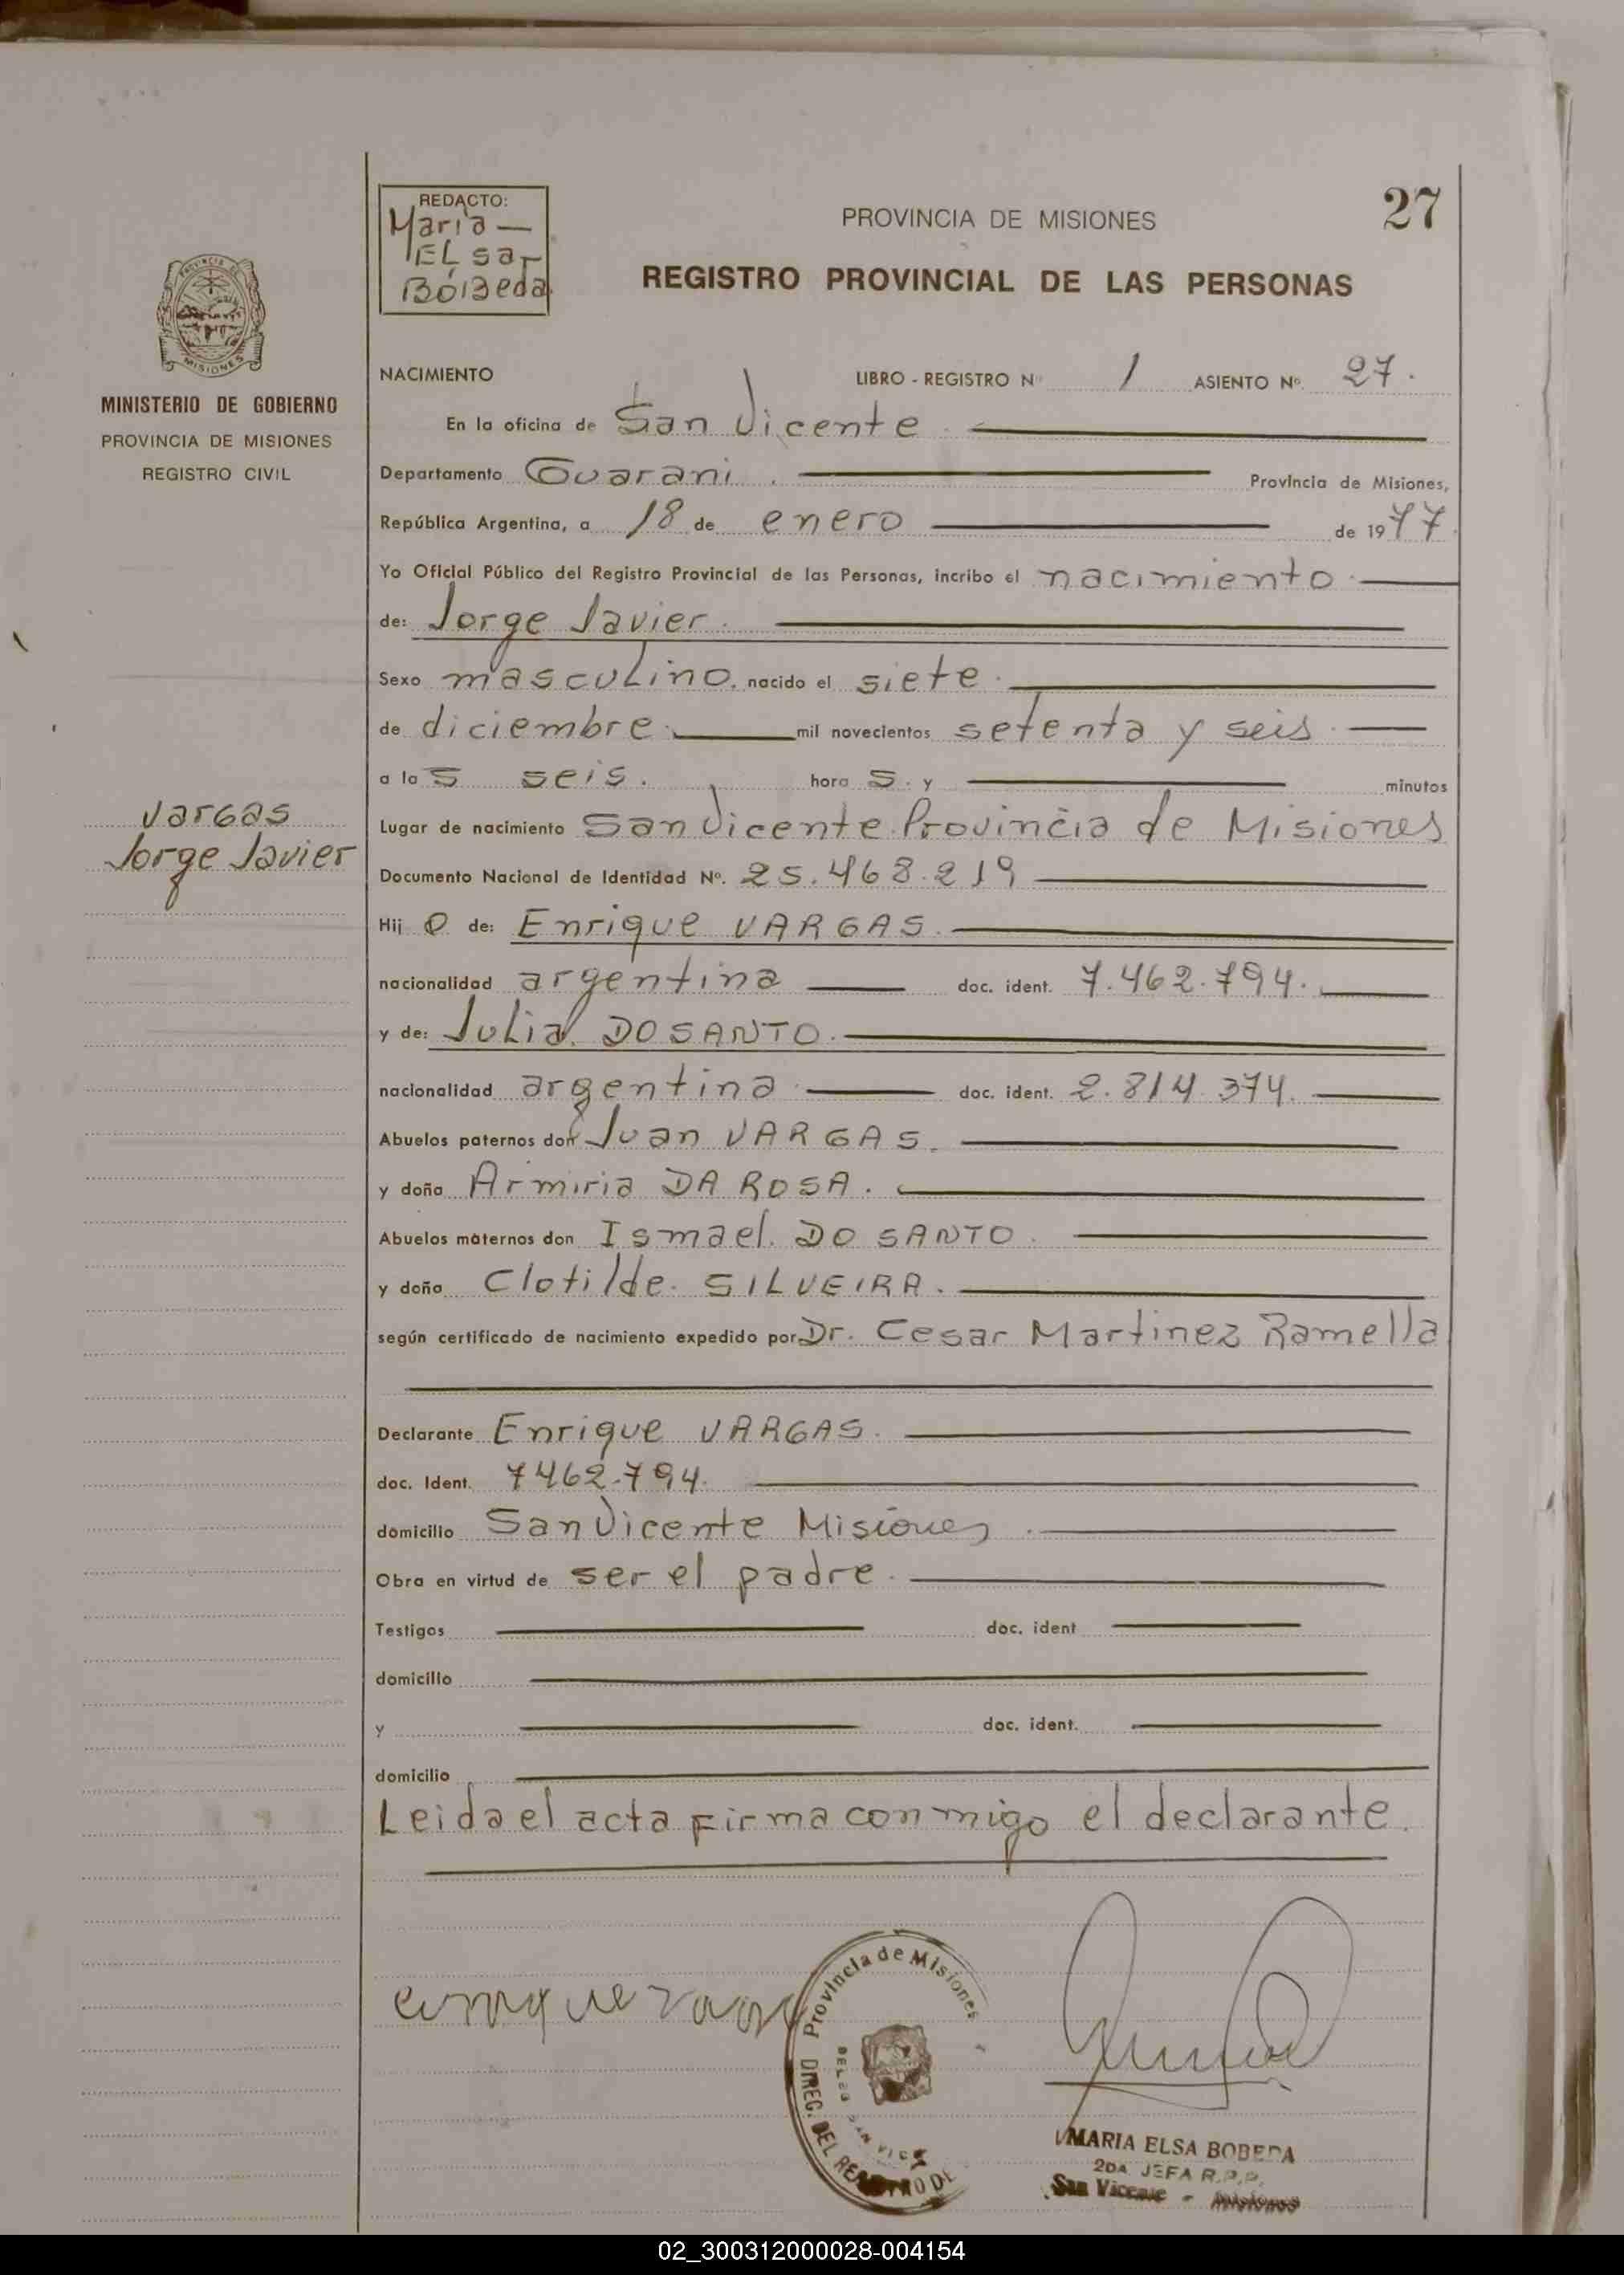 REDACTO:
Maria
ELsa
BóBeda
PROVINCIA DE MISIONES
27
REGISTRO PROVINCIAL DE LAS PERSONAS
PROVINCIA DE MISIONES
MINISTERIO DE GOBIERNO
PROVINCIA DE MISIONES
REGISTRO CIVIL
NACIMIENTO LIBRO - REGISTRO Nº 1 ASIENTO Nº. 27.
En la oficina de San Vicente.
Departamento Guarani. Provincia de Misiones,
República Argentina, a 18 de enero de 1977.
Yo Oficial Público del Registro Provincial de las Personas, incribo el nacimiento.
de: Jorge Javier.
Sexo masculino. nacido el siete.
de diciembre. mil novecientos setenta y seis.
a las seis. hora s. y minutos
Vargas
Jorge Javier
Lugar de nacimiento San Vicente Provincia de Misiones
Documento Nacional de Identidad Nº. 25.468.219
Hij o de: Enrique VARGAS.
nacionalidad argentina doc. ident. 7.462.794.
y de: Julia DO SANTO.
nacionalidad argentina doc. ident. 2.814.374.
Abuelos paternos don Juan VARGAS.
y doña Armiria DA ROSA.
Abuelos maternos don Ismael. DO SANTO.
y doña Clotilde. SILVEIRA.
según certificado de nacimiento expedido por Dr. Cesar Martinez Ramella
Declarante Enrique VARGAS.
doc. Ident. 7462.794.
domicilio San Vicente Misiones.
Obra en virtud de ser el padre.
Testigos doc. ident
domicilio
y doc. ident.
domicilio
Leida el acta firma conmigo el declarante.
Provincia de Misiones
DIREC. DEL REGISTRO DE
MARIA ELSA BOBEDA
2DA JEFA R.P.P.
San Vicente - Misiones
02_300312000028-004154